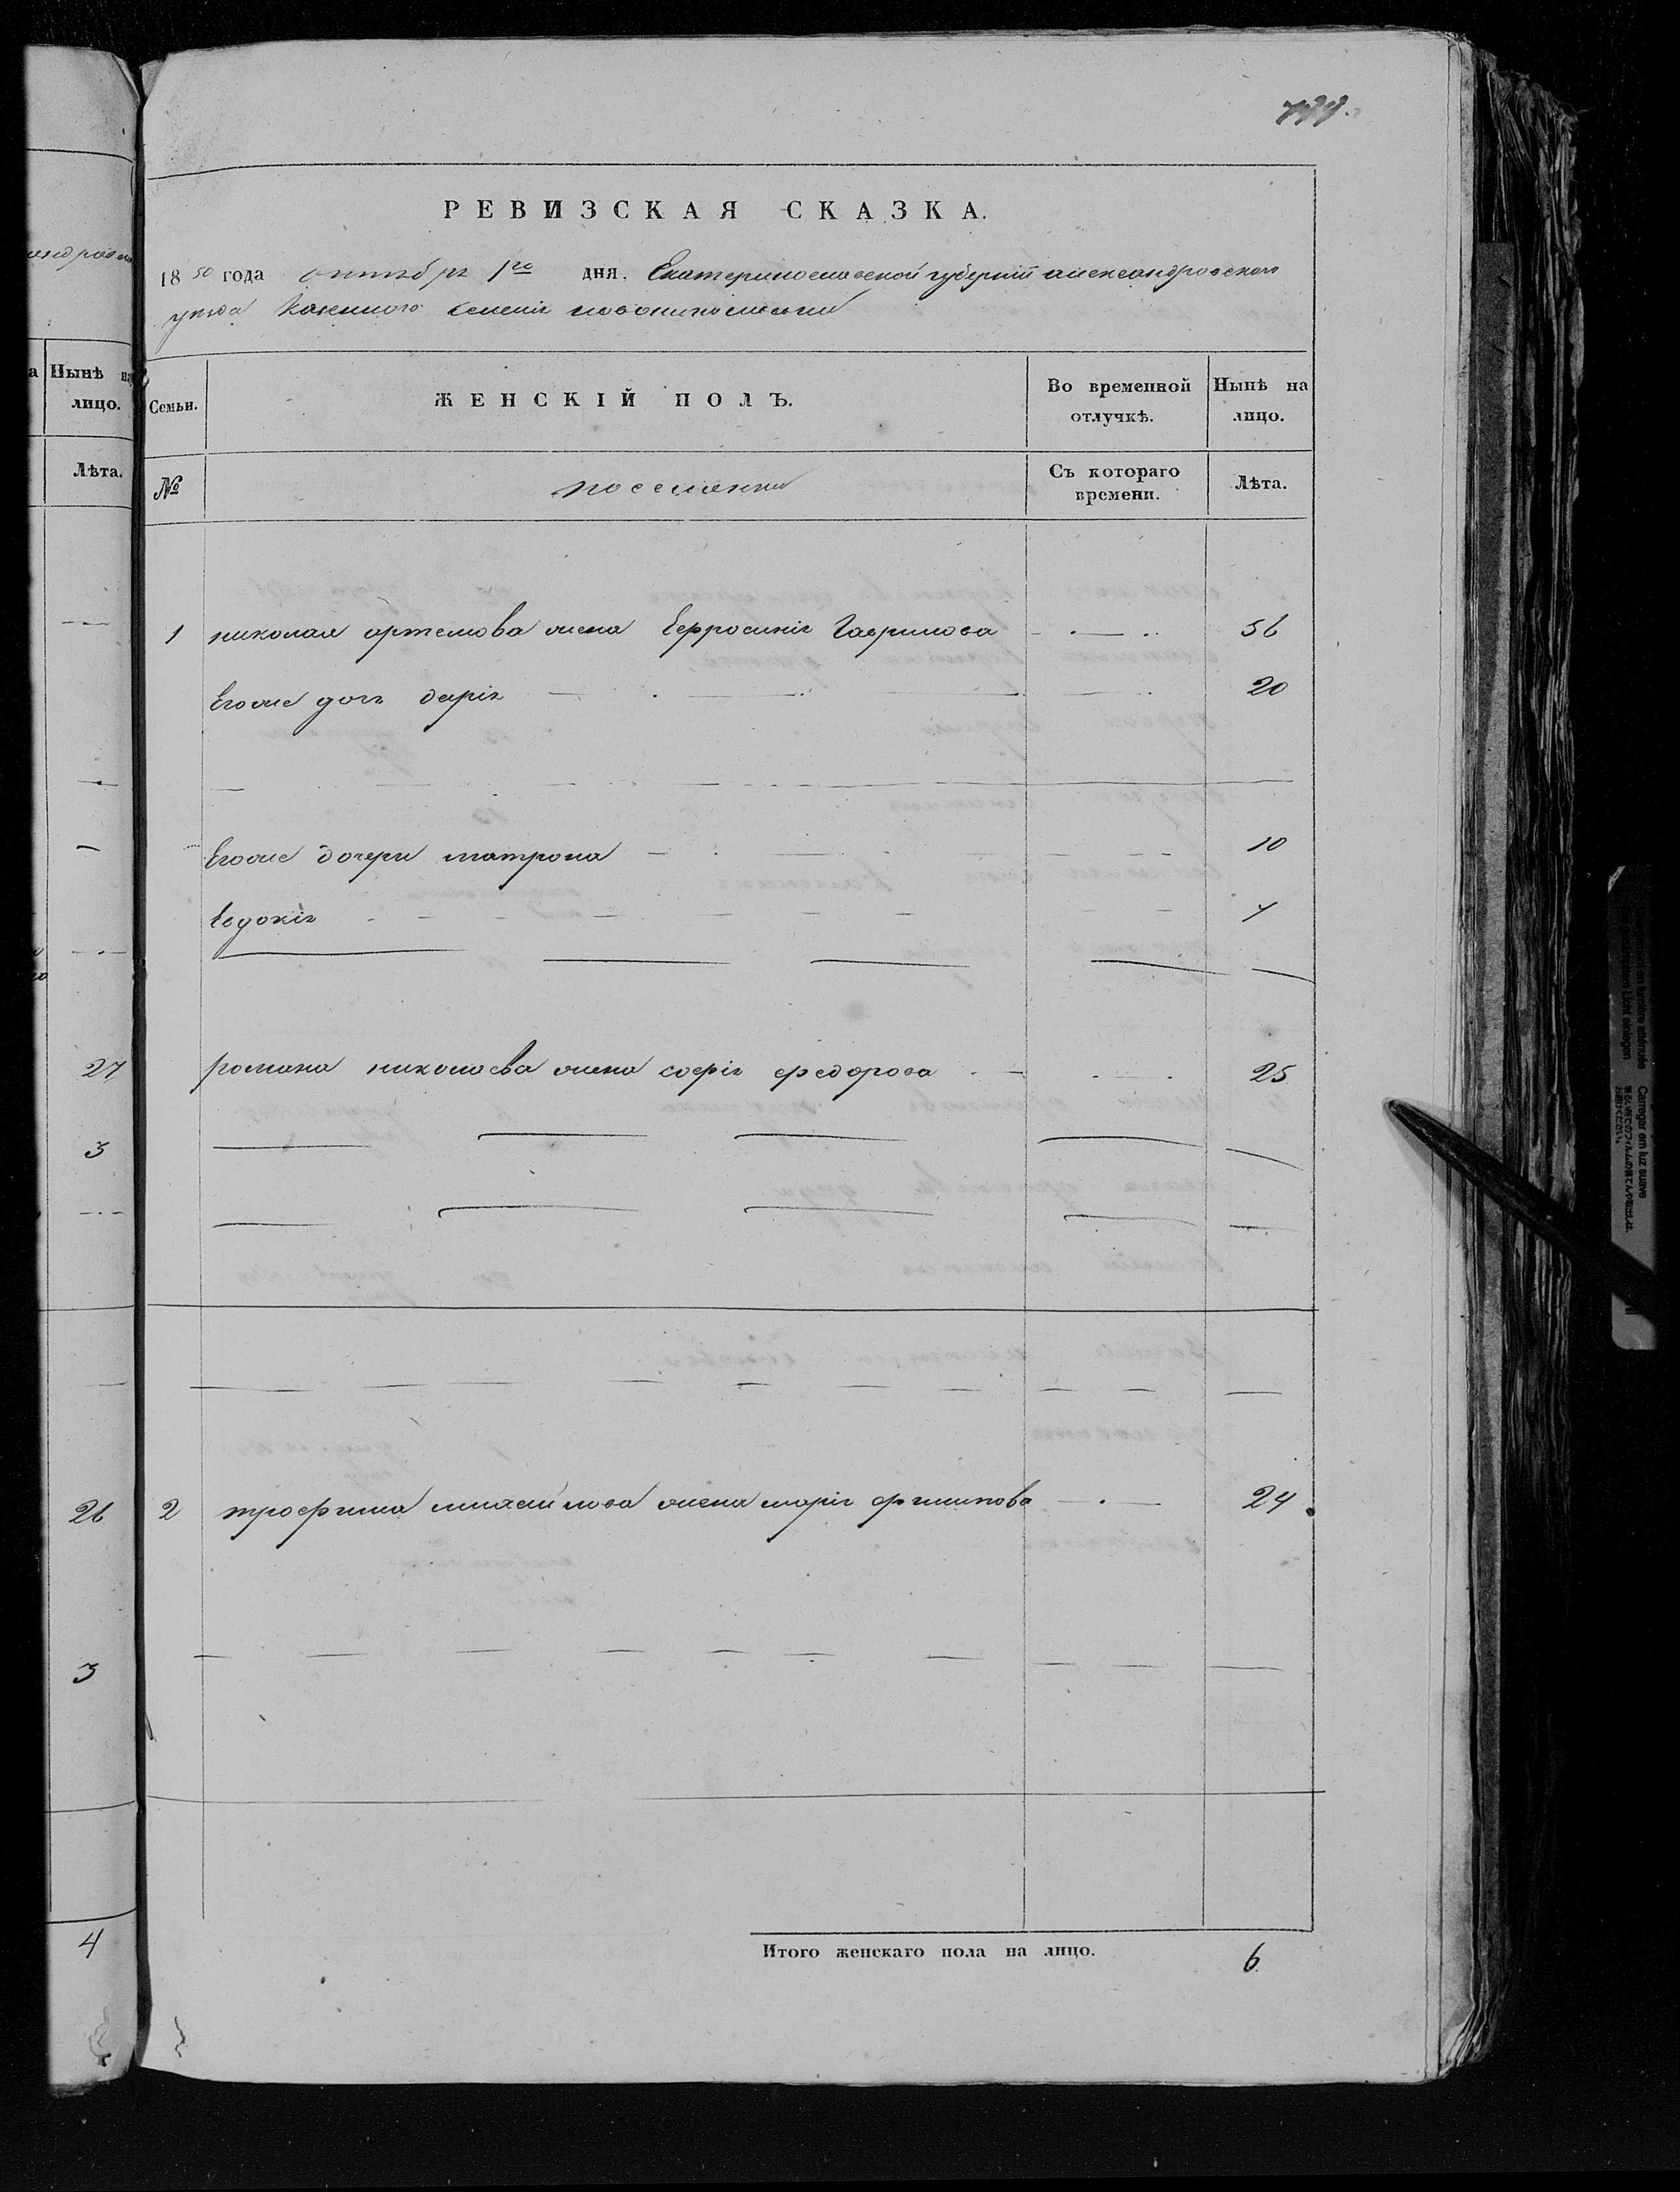 РЕВИЗСКАЯ СКАЗКА.
1850 года октября 1го дня. Екатеринославской губернiи александровского
уезда Казенного селения новониколаевки
Нынѣ на лицо.
Семьи.
ЖЕНСКІЙ ПОЛЪ.
Во временной отлучкѣ.
Нынѣ на лицо.
Лѣта.
№
поселянки
Съ котораго времени.
Лѣта.
1 николая артемова жена Ефросинiя Гаврилова 56
Егоже доч дарiя 20
Егоже дочери матрона 10
Евдокiя 7
27
романа николаева жена софiя федорова 25
3
26
2 трофима михайлова жена марiя филипова 24
3
Итого женскаго пола на лицо. 6
4